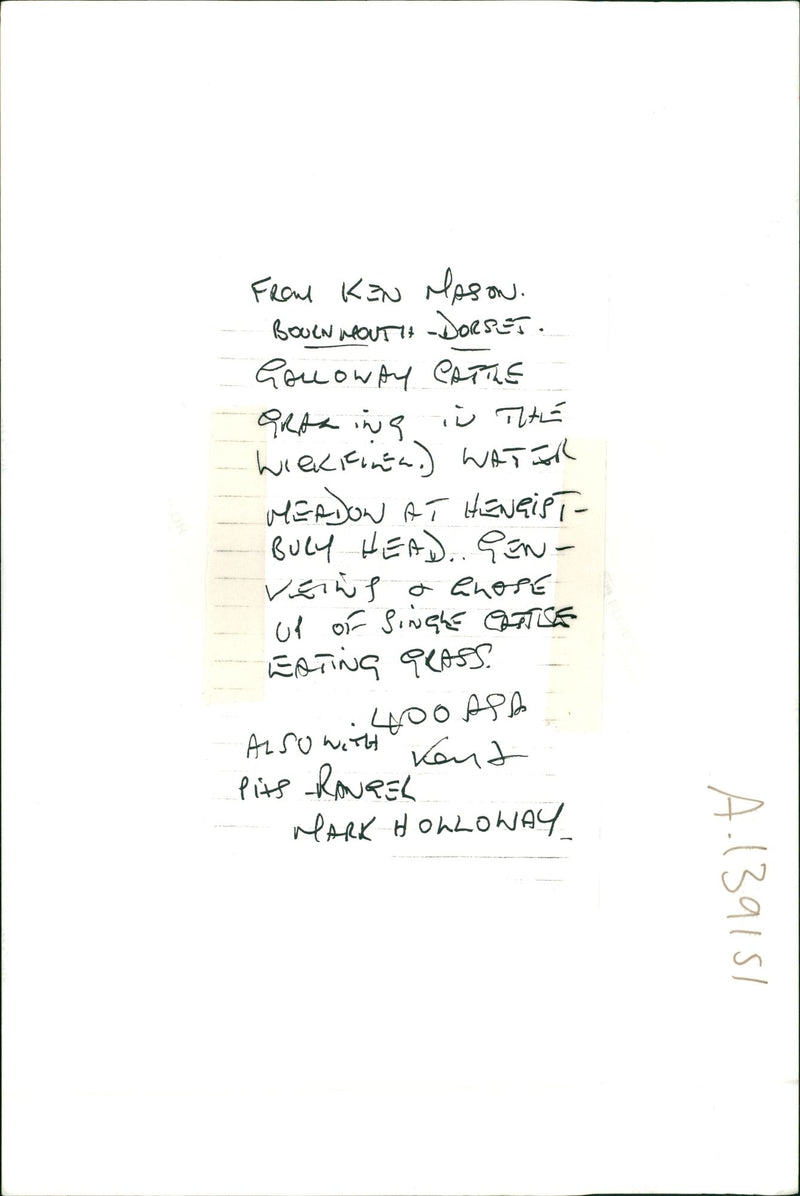 FROM KEN MASON.
BOURNMOUTH - DORSET.
GALLOWAY CATTLE
GRAZING IN THE
WICKFIELD WATER
MEADOW AT HENGIST-
BURY HEAD.. GEN-
VEIWS & CLOSE
UP OF SINGLE CATTLE
EATING GRASS.
400 ASA
Ken
ALSO WITH
PITS - RANGER
MARK HOLLOWAY
A.139151